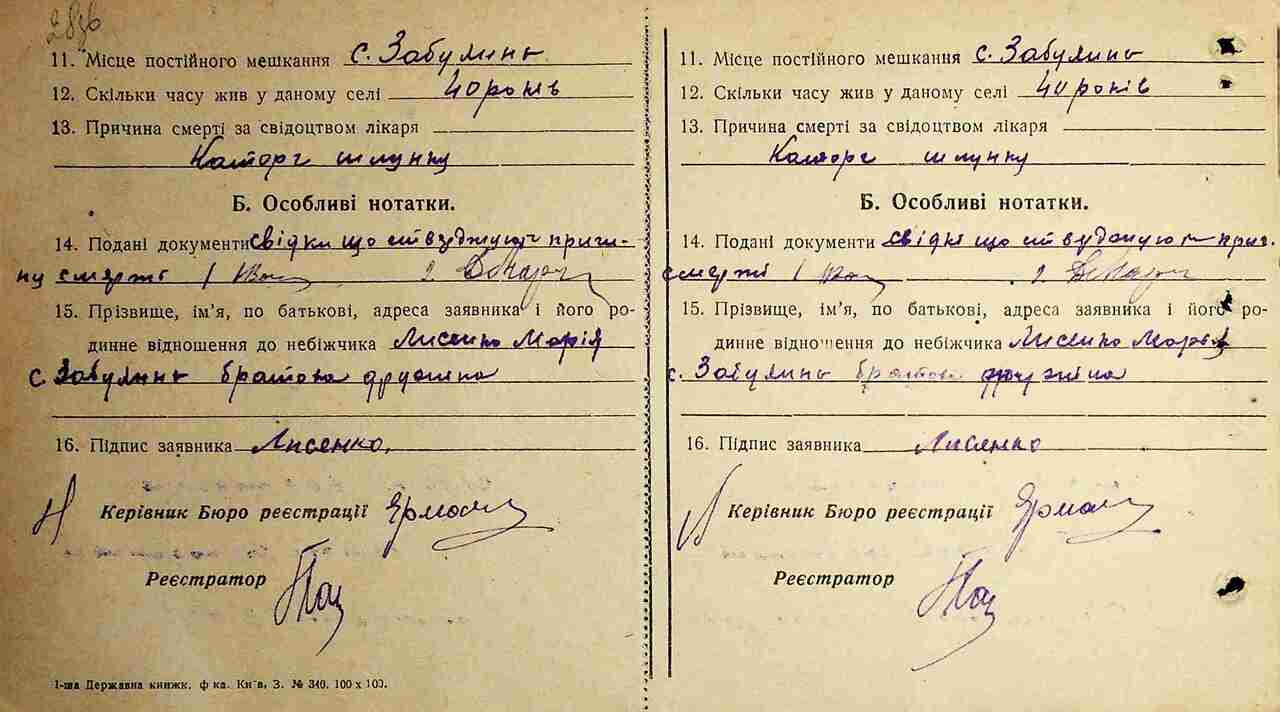 11. Місце постійного мешкання с. Забулинь
12. Скільки часу жив у даному селі 40 років
13. Причина смерті за свідоцтвом лікаря
Катарг шлунку
Б. Особливі нотатки.
14. Подані документи свідки що ствуджують причи-
ну смерті 1 2
15. Прізвище, ім’я, по батькові, адреса заявника і його ро-
динне відношення до небіжчика Лисенко Марія
с. Забулинь братова дружина
16. Підпис заявника Лисенко
Керівник Бюро реєстрації
Реєстратор
1-ша Державна книжк. ф-ка. Київ, З. № 340. 100 x 100.
11. Місце постійного мешкання с. Забулинь
12. Скільки часу жив у даному селі 40 років
13. Причина смерті за свідоцтвом лікаря
Катарг шлунку
Б. Особливі нотатки.
14. Подані документи свідки що ствуджують прич.
смерті 1 2
15. Прізвище, ім’я, по батькові, адреса заявника і його ро-
динне відношення до небіжчика Лисенко Марія
с. Забулинь братова дружина
16. Підпис заявника Лисенко
Керівник Бюро реєстрації
Реєстратор